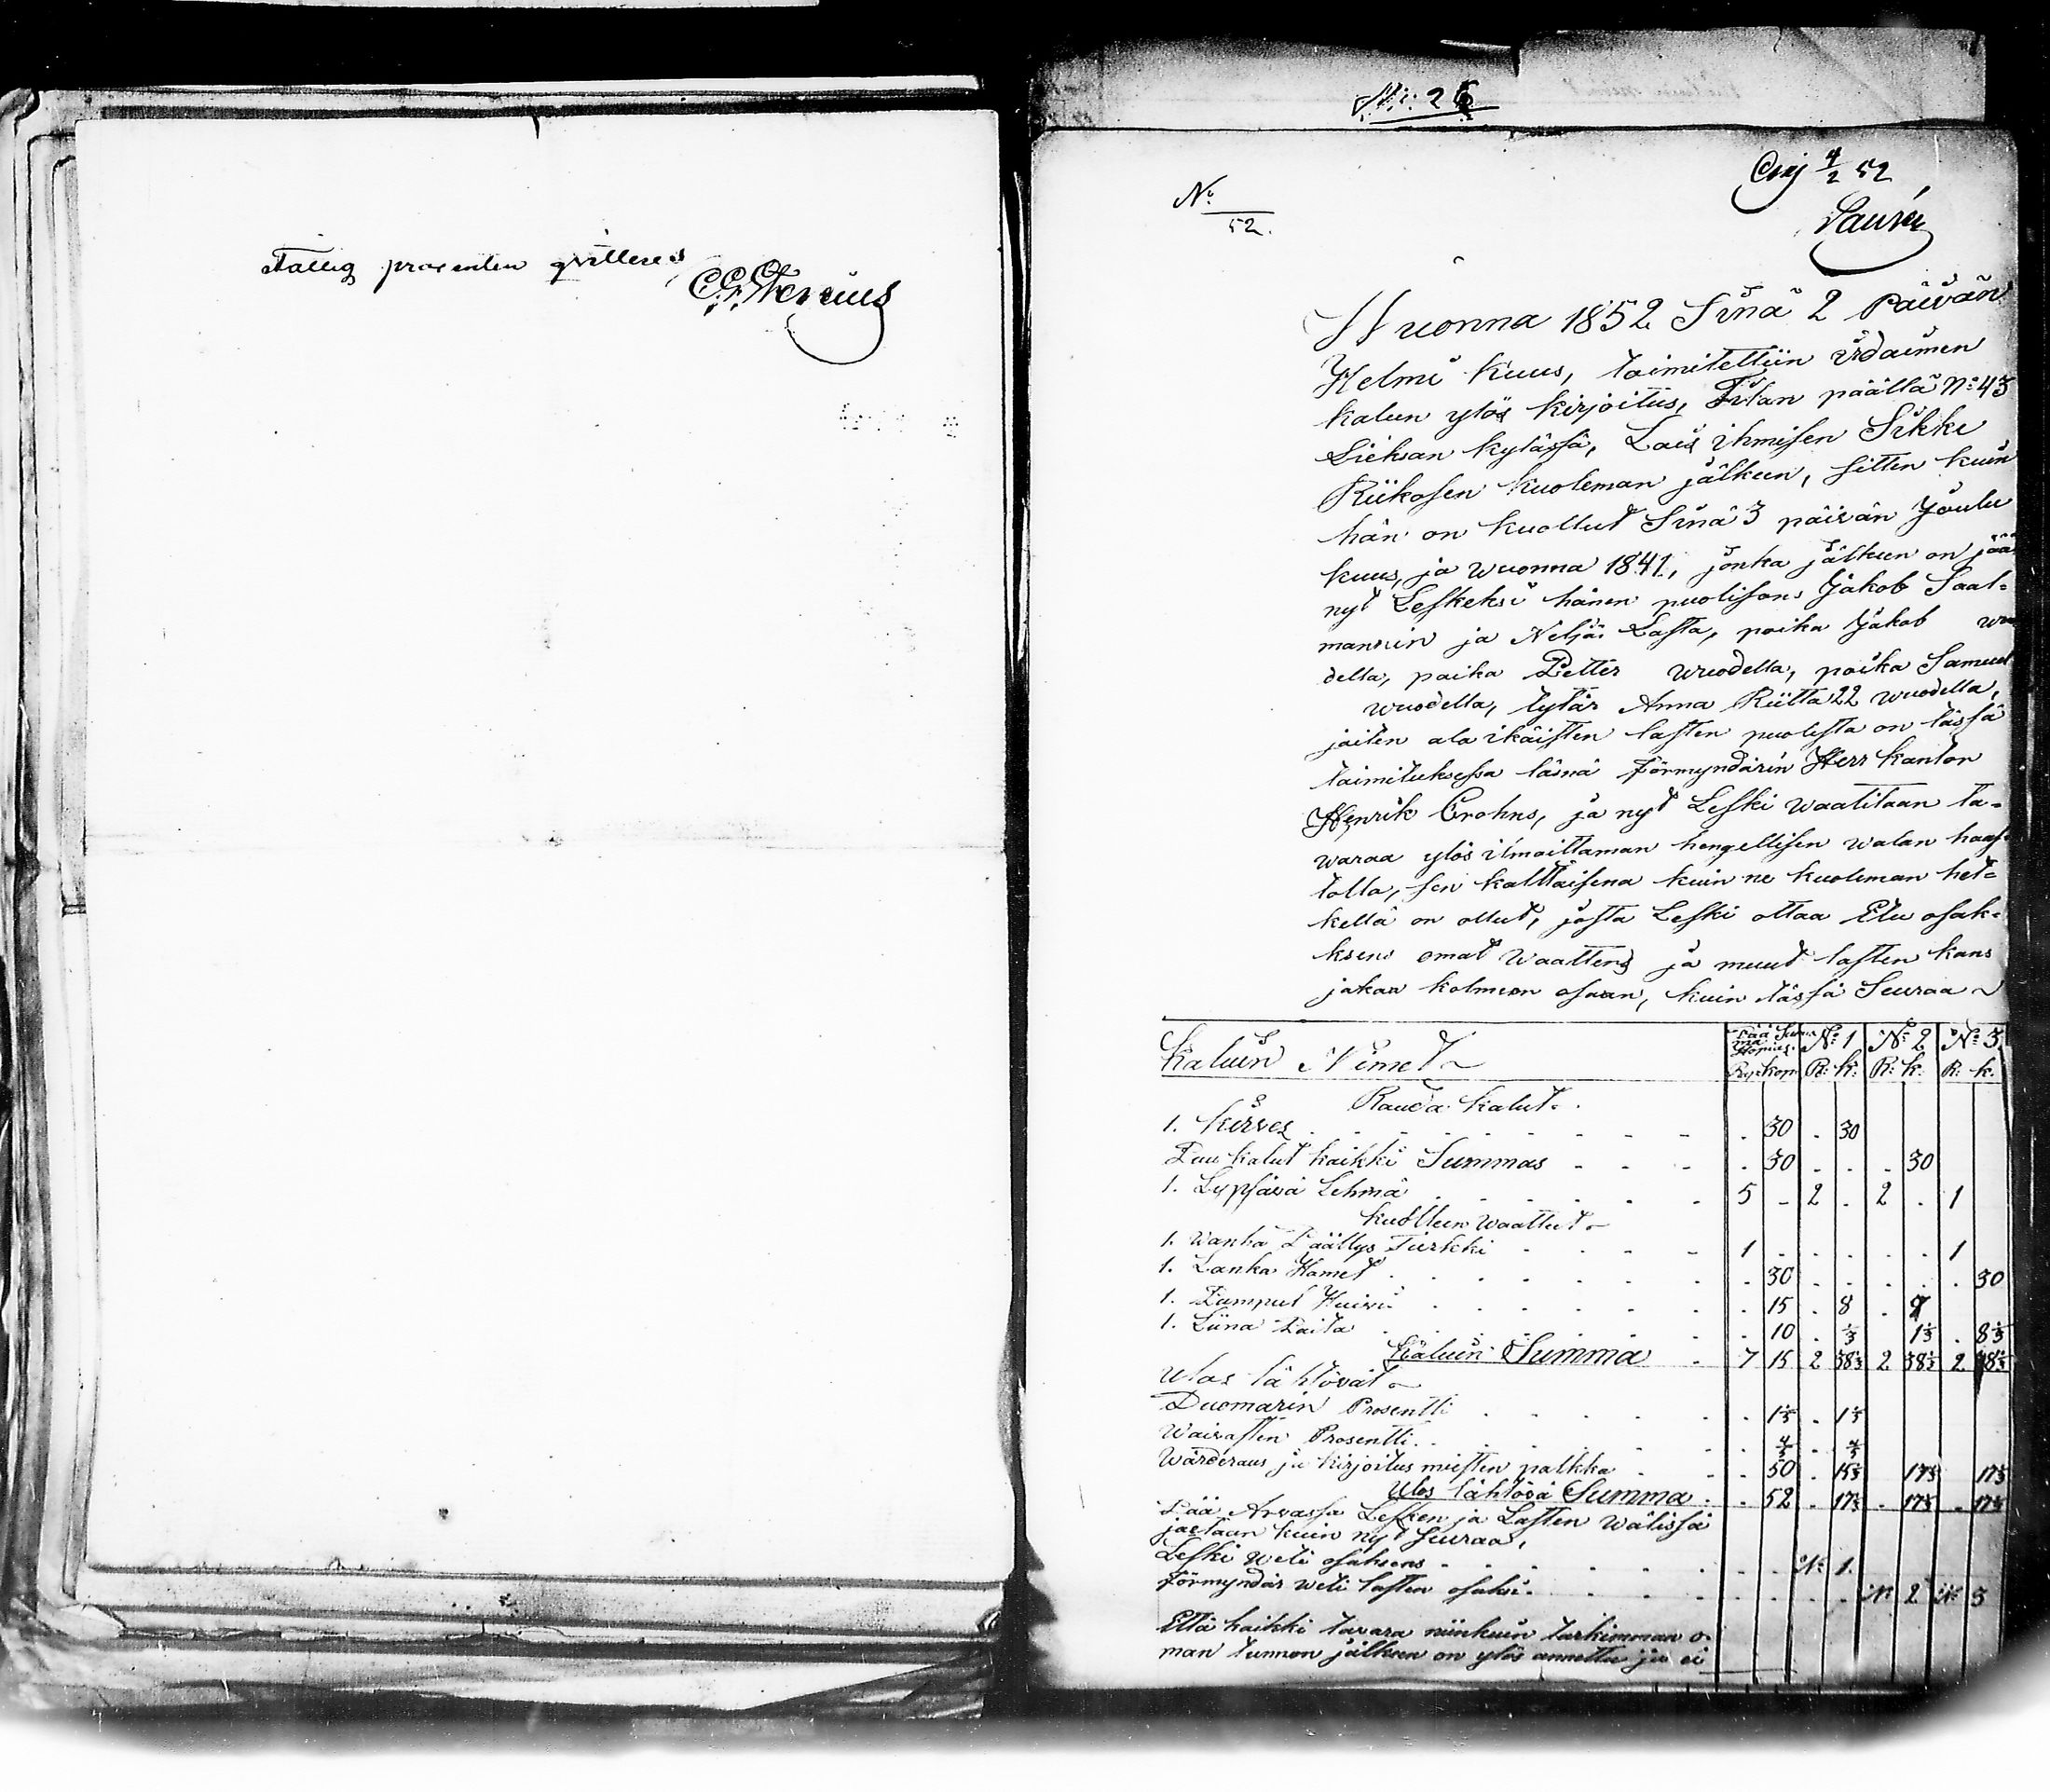 Fattig procenten qvitteres
No: 26
No
52.
Exij 4/2 52
Wuonna 1852 Sinä 2 Päivän
Helmi kuus, toimitettiin irdaimen
kalun ylös kirjoitus, Tilan päällä No 43
Lieksan kylässä, Lois ihmisen Sikke
Riikosen kuoleman jälkeen, sitten kuin
hän on kuollut Sinä 3 päivän Joulu
kuus, ja wuonna 1841, jonka jälkeen on jää
nyt Leskeksi hänen puolisons Jakob Saal=
mannin ja Neljä Lasta, poika Jakob wuo
della, poika Petter wuodella, poika Samuel
wuodella, tytär Anna Riitta 22 wuodella,
joiten ala ikäisten lasten puolesta on tässä
toimituksessa läsnä Förmyndärin Herr kantor
Henrik Crohns, ja nyt Leski waatitaan ta=
waraa ylös ilmoittaman hengellisen walan haas=
tolla, sen kalttaisena kuin ne kuoleman het=
kellä on ollut, josta Leski ottaa Etu osak=
ksens omat waattens ja muut lasten kans
jakaa kolmeen osaan, kuin tässä Seuraa
Kaluin Nimet Pää Sum=ma Hopias. No 1 No 2 No 3
Rup: kop: R: k: R: k: R: k.
Rauda kalut.
1. Kirves . 30 . 30
Puu kalut kaikki Summas . 30 . . . 30
1. Lypsävä Lehmä 5 - 2 . 2 . 1
kuolleen waattet
1. Wanha Päällys Turkki 1 . . . . . 1
1. Lanka Hamet . 30 . . . . . 30
1. Pumpul Huivi . 15 . 8 . 7
1. Liina Paita . 10 . 1/3 1 1/3 . 8 1/3
Kaluin Summa . 7 15 2 38 1/3 2 38 1/3 2 38 1/3
Ulos lähtövät
Duomarin Prosentti . 1 1/5 . 1 1/5
Waivasten Prosentti . 4/5 . 4/5
Wärderaus ja kirjoitus miesten palkka . 50 . 15 1/3 17 1/3 17 1/3
Ulos lähtövä Summa . 52 . 17 1/3 . 17 1/3 . 17 1/3
Pää Arvassa Lesken ja Lasten wälissä
jaetaan kuin nyt Seuraa,
Leski weti osaksens No 1.
Förmyndär weti lasten osaksi. No 2 No 3
Että kaikki tavara niinkuin tarkimman o=
man tunnon jälkeen on ylös annettu ja ei